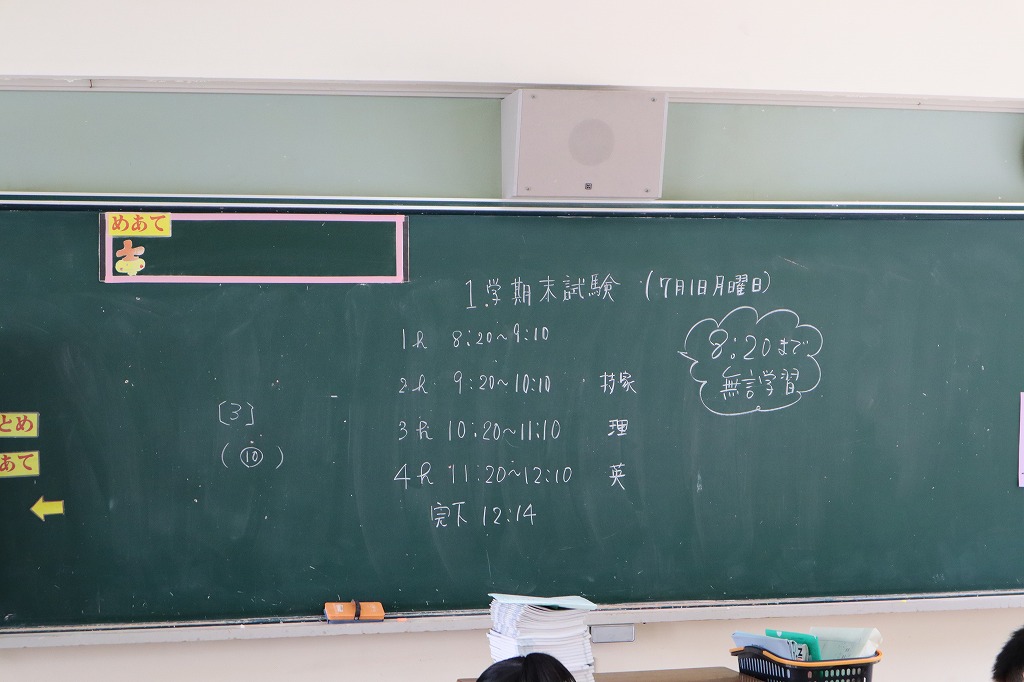 めあて
1学期末試験 (7月1日月曜日)
1h 8:20~9:10
2h 9:20~10:10 技家
3h 10:20~11:10 理
4h 11:20~12:10 英
完下 12:14
8:20まで
無言学習
[3]
(⑩)
とめ
あて